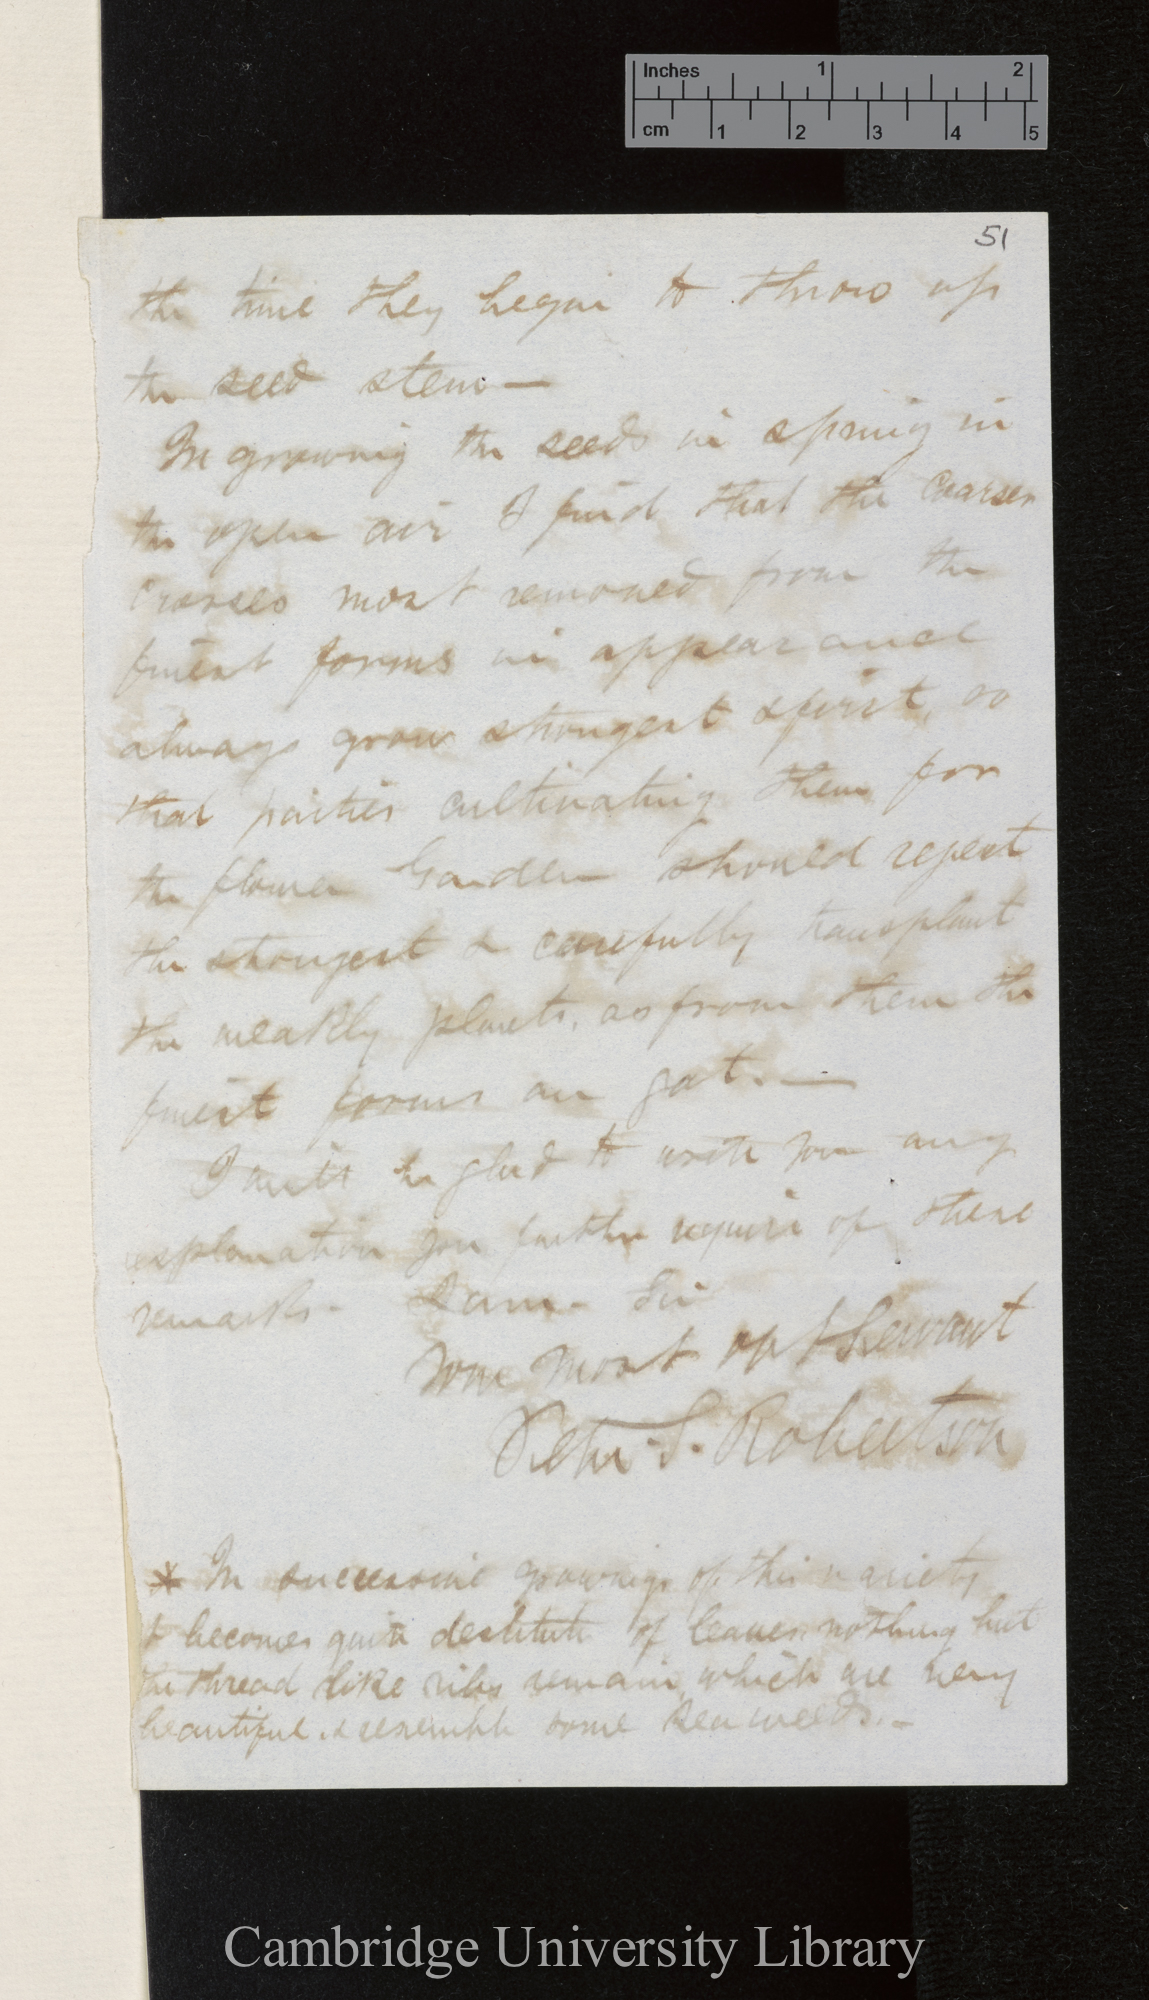 Inches 1 2
cm 1 2 3 4 5
51
the time they begin to throw up
the seed stem —
In growing the seeds in spring in
the open air I find that the Coarser
Crosses most removed from the
finest forms in appearance
always grow strongest & first, so
that parties cultivating them for
the flower Garden should reject
the strongest & carefully transplant
the weakly plants, as from them the
finest forms are got. —
I will be glad to write you any
explanation you further require of these
remarks - I am - Sir
Your most obt Servant
Peter S. Robertson
* In successive growings of this variety
it becomes quite destitute of leaves, nothing but
the thread like ribs remain, which are very
beautiful & resemble some Sea weeds. —
Cambridge University Library